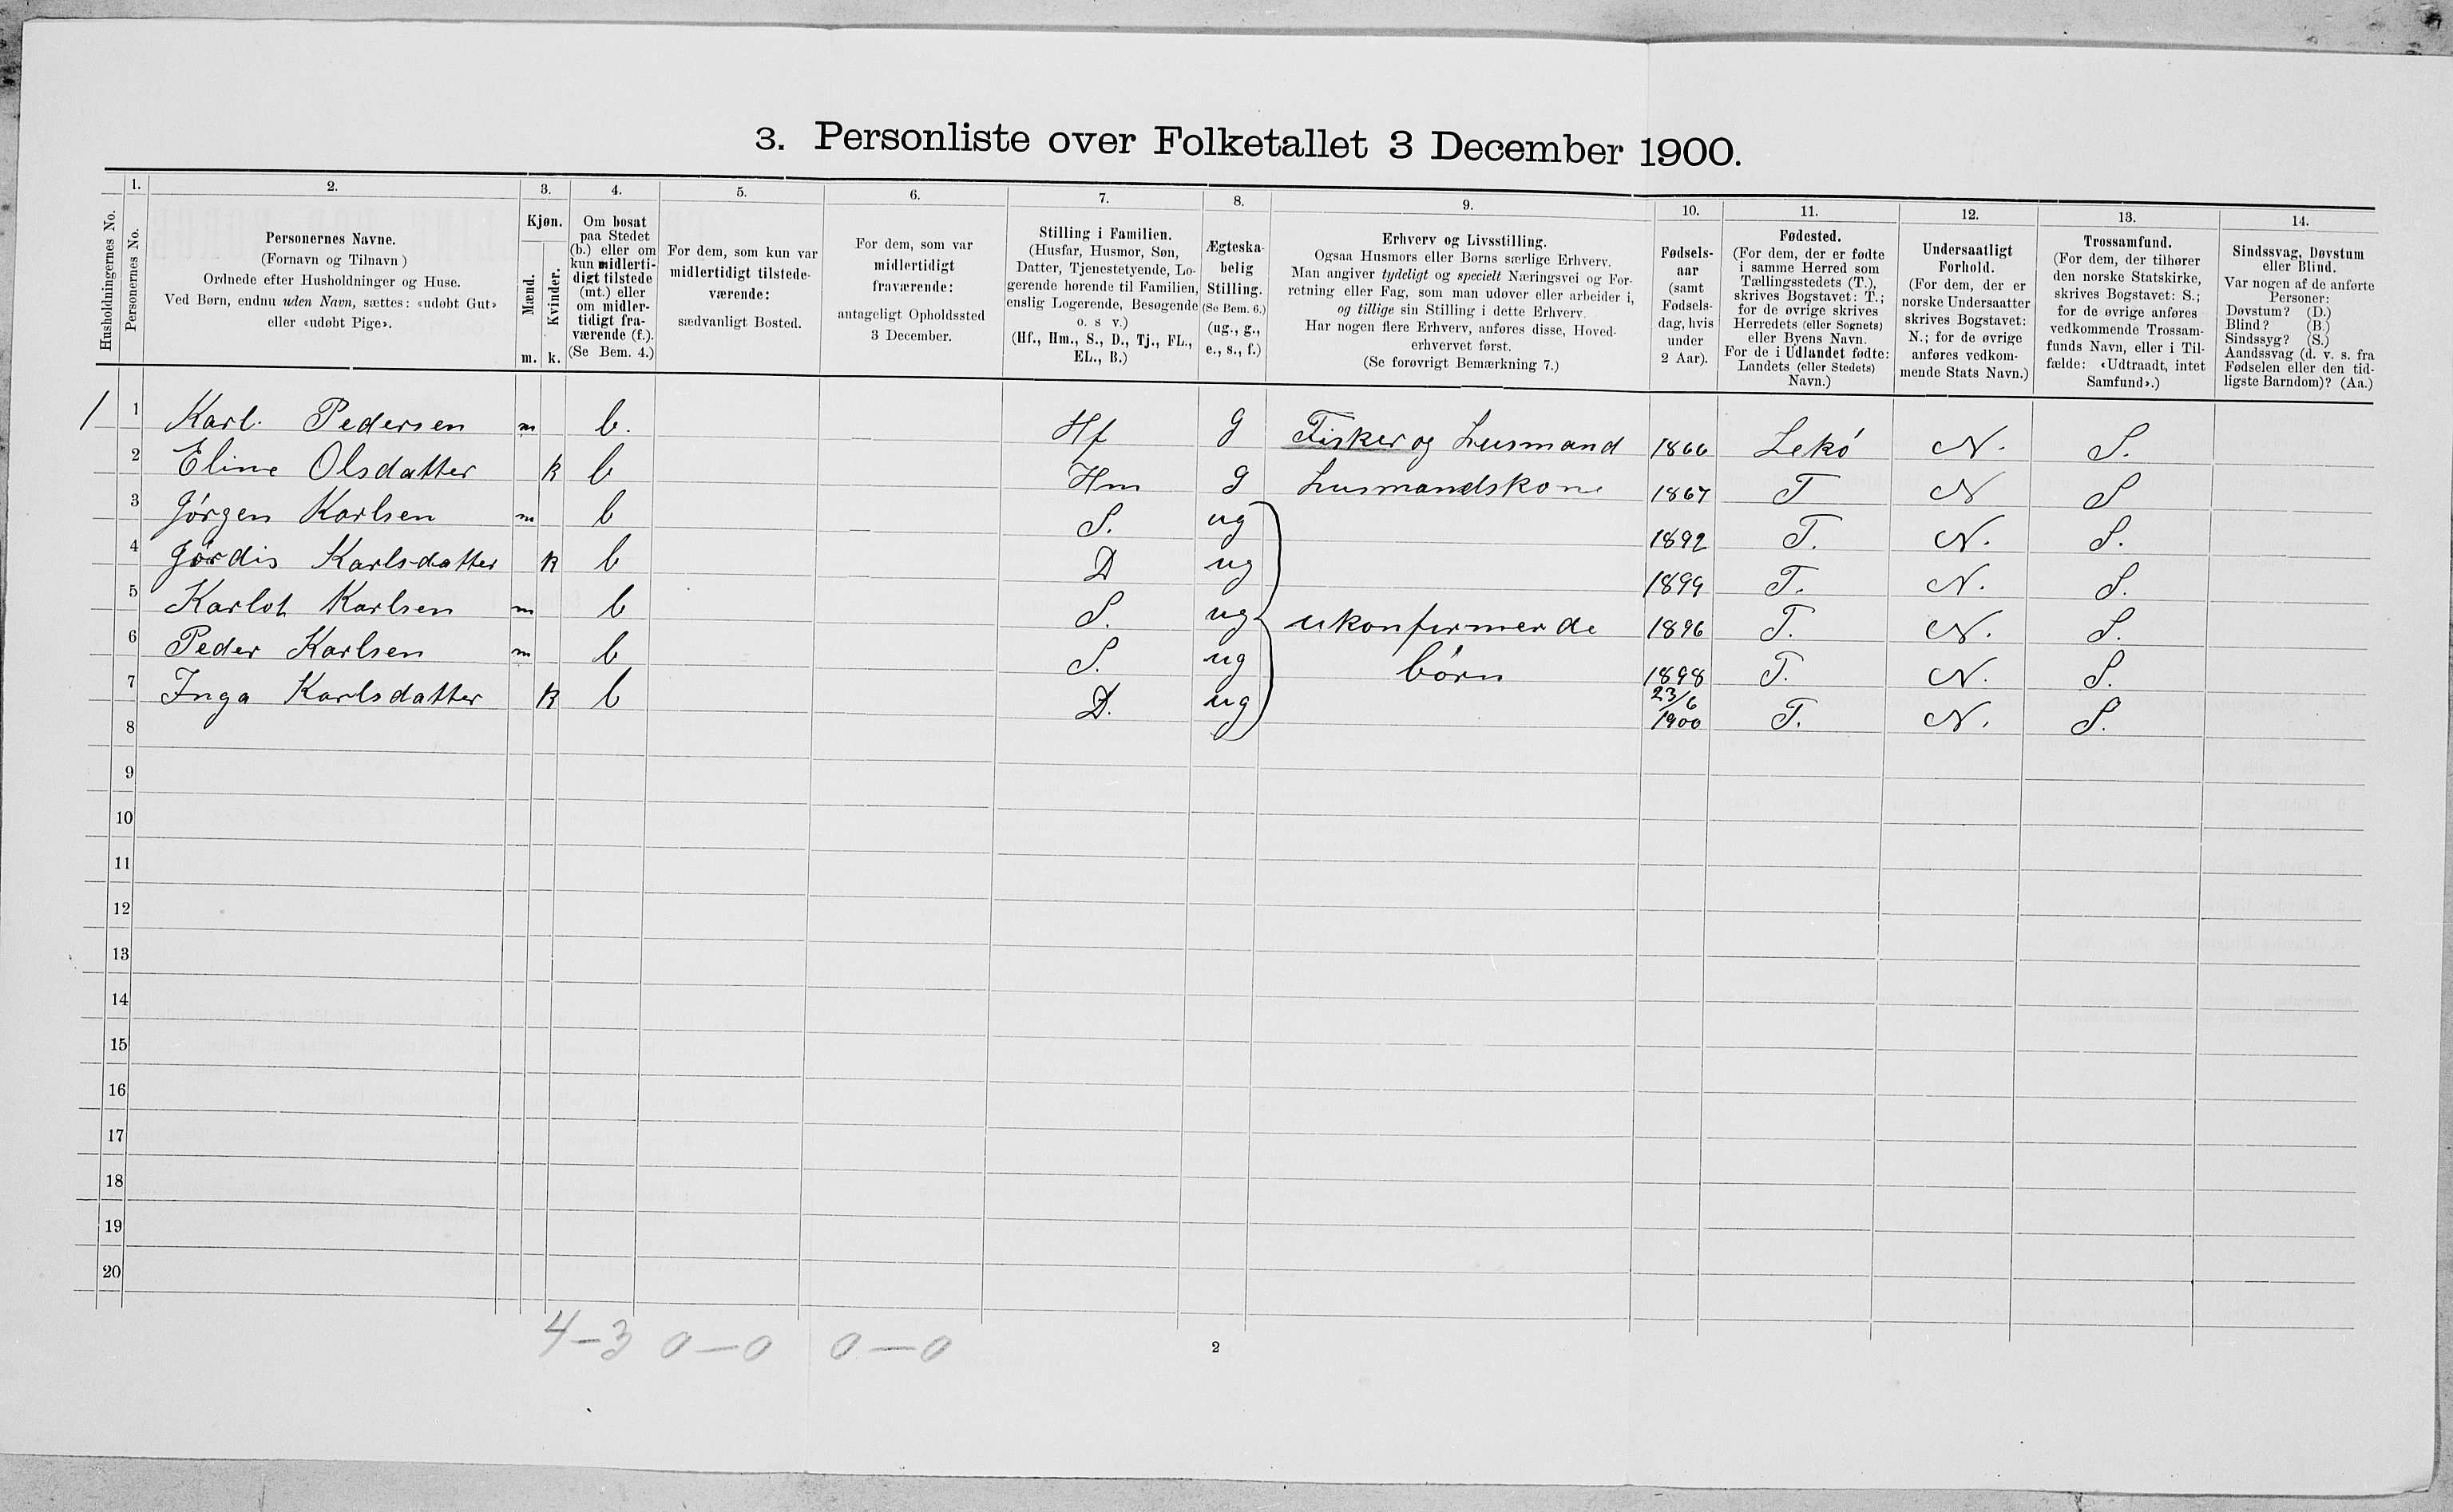 3. Personliste over Folketallet 3 December 1900.
1. 2. 3. 4. 5. 6. 7. 8. 9. 10. 11. 12. 13. 14.
Husholdningernes No.
Personernes No.
Personernes Navne.
(Fornavn og Tilnavn)
Ordnede efter Husholdninger og Huse.
Ved Børn, endnu uden Navn, sættes: «udøbt Gut»
eller «udøbt Pige».
Kjøn.
Mænd.
Kvinder.
m. k.
Om bosat
paa Stedet
(b.) eller om
kun midlerti-
digt tilstede
(mt.) eller
om midler-
tidigt fra-
værende (f.).
(Se Bem. 4.)
For dem, som kun var
midlertidigt tilstede-
værende:
sædvanligt Bosted.
For dem, som var
midlertidigt
fraværende:
antageligt Opholdssted
3 December.
Stilling i Familien.
(Husfar, Husmor, Søn,
Datter, Tjenestetyende, Lo-
gerende hørende til Familien,
enslig Logerende, Besøgende
o. s v.)
(Hf., Hm., S., D., Tj., FL.,
EL., B.)
Ægteska-
belig
Stilling.
(Se Bem. 6.)
(ug., g.,
e., s., f.)
Erhverv og Livsstilling.
Ogsaa Husmors eller Børns særlige Erhverv.
Man angiver tydeligt og specielt Næringsvei og For-
retning eller Fag, som man udøver eller arbeider i,
og tillige sin Stilling i dette Erhverv.
Har nogen flere Erhverv, anføres disse, Hoved-
erhvervet først.
(Se forøvrigt Bemærkning 7.)
Fødsels-
aar
(samt
Fødsels-
dag, hvis
under
2 Aar).
Fødested.
(For dem, der er fødte
i samme Herred som
Tællingsstedets (T.),
skrives Bogstavet: T.;
for de øvrige skrives
Herredets (eller Sognets)
eller Byens Navn.
For de i Udlandet fødte:
Landets (eller Stedets)
Navn.)
Undersaatligt
Forhold.
(For dem, der er
norske Undersaatter
skrives Bogstavet:
N.; for de øvrige
anføres vedkom-
mende Stats Navn.)
Trossamfund.
(For dem, der tilhører
den norske Statskirke,
skrives Bogstavet: S.;
for de øvrige anføres
vedkommende Trossam-
funds Navn, eller i Til-
fælde: «Udtraadt, intet
Samfund».)
Sindssvag, Døvstum
eller Blind.
Var nogen af de anførte
Personer:
Døvstum? (D.)
Blind? (B.)
Sindssyg? (S.)
Aandssvag (d. v. s. fra
Fødselen eller den tid-
ligste Barndom)? (Aa.)
1 1 Karl. Pedersen m b. Hf g Fisker og Husmand 1866 Lekö N. S.
2 Eline Olsdatter k b Hm g Husmandskone 1867 T N S
3 Jørgen Karlsen m b S. ug 1892 T. N. S.
4 Jørdis Karlsdatter k b D ug 1894 T. N. S.
5 Karlot Karlsen m b S. ug ukonfirmerde 1896 T. N. S.
6 Peder Karlsen m b S. ug børn 1898 T. N. S.
7 Inga Karlsdatter k b D. ug 23/6 1900 T. N. S.
8
9
10
11
12
13
14
15
16
17
18
19
20
4-3 0-0 0-0
2